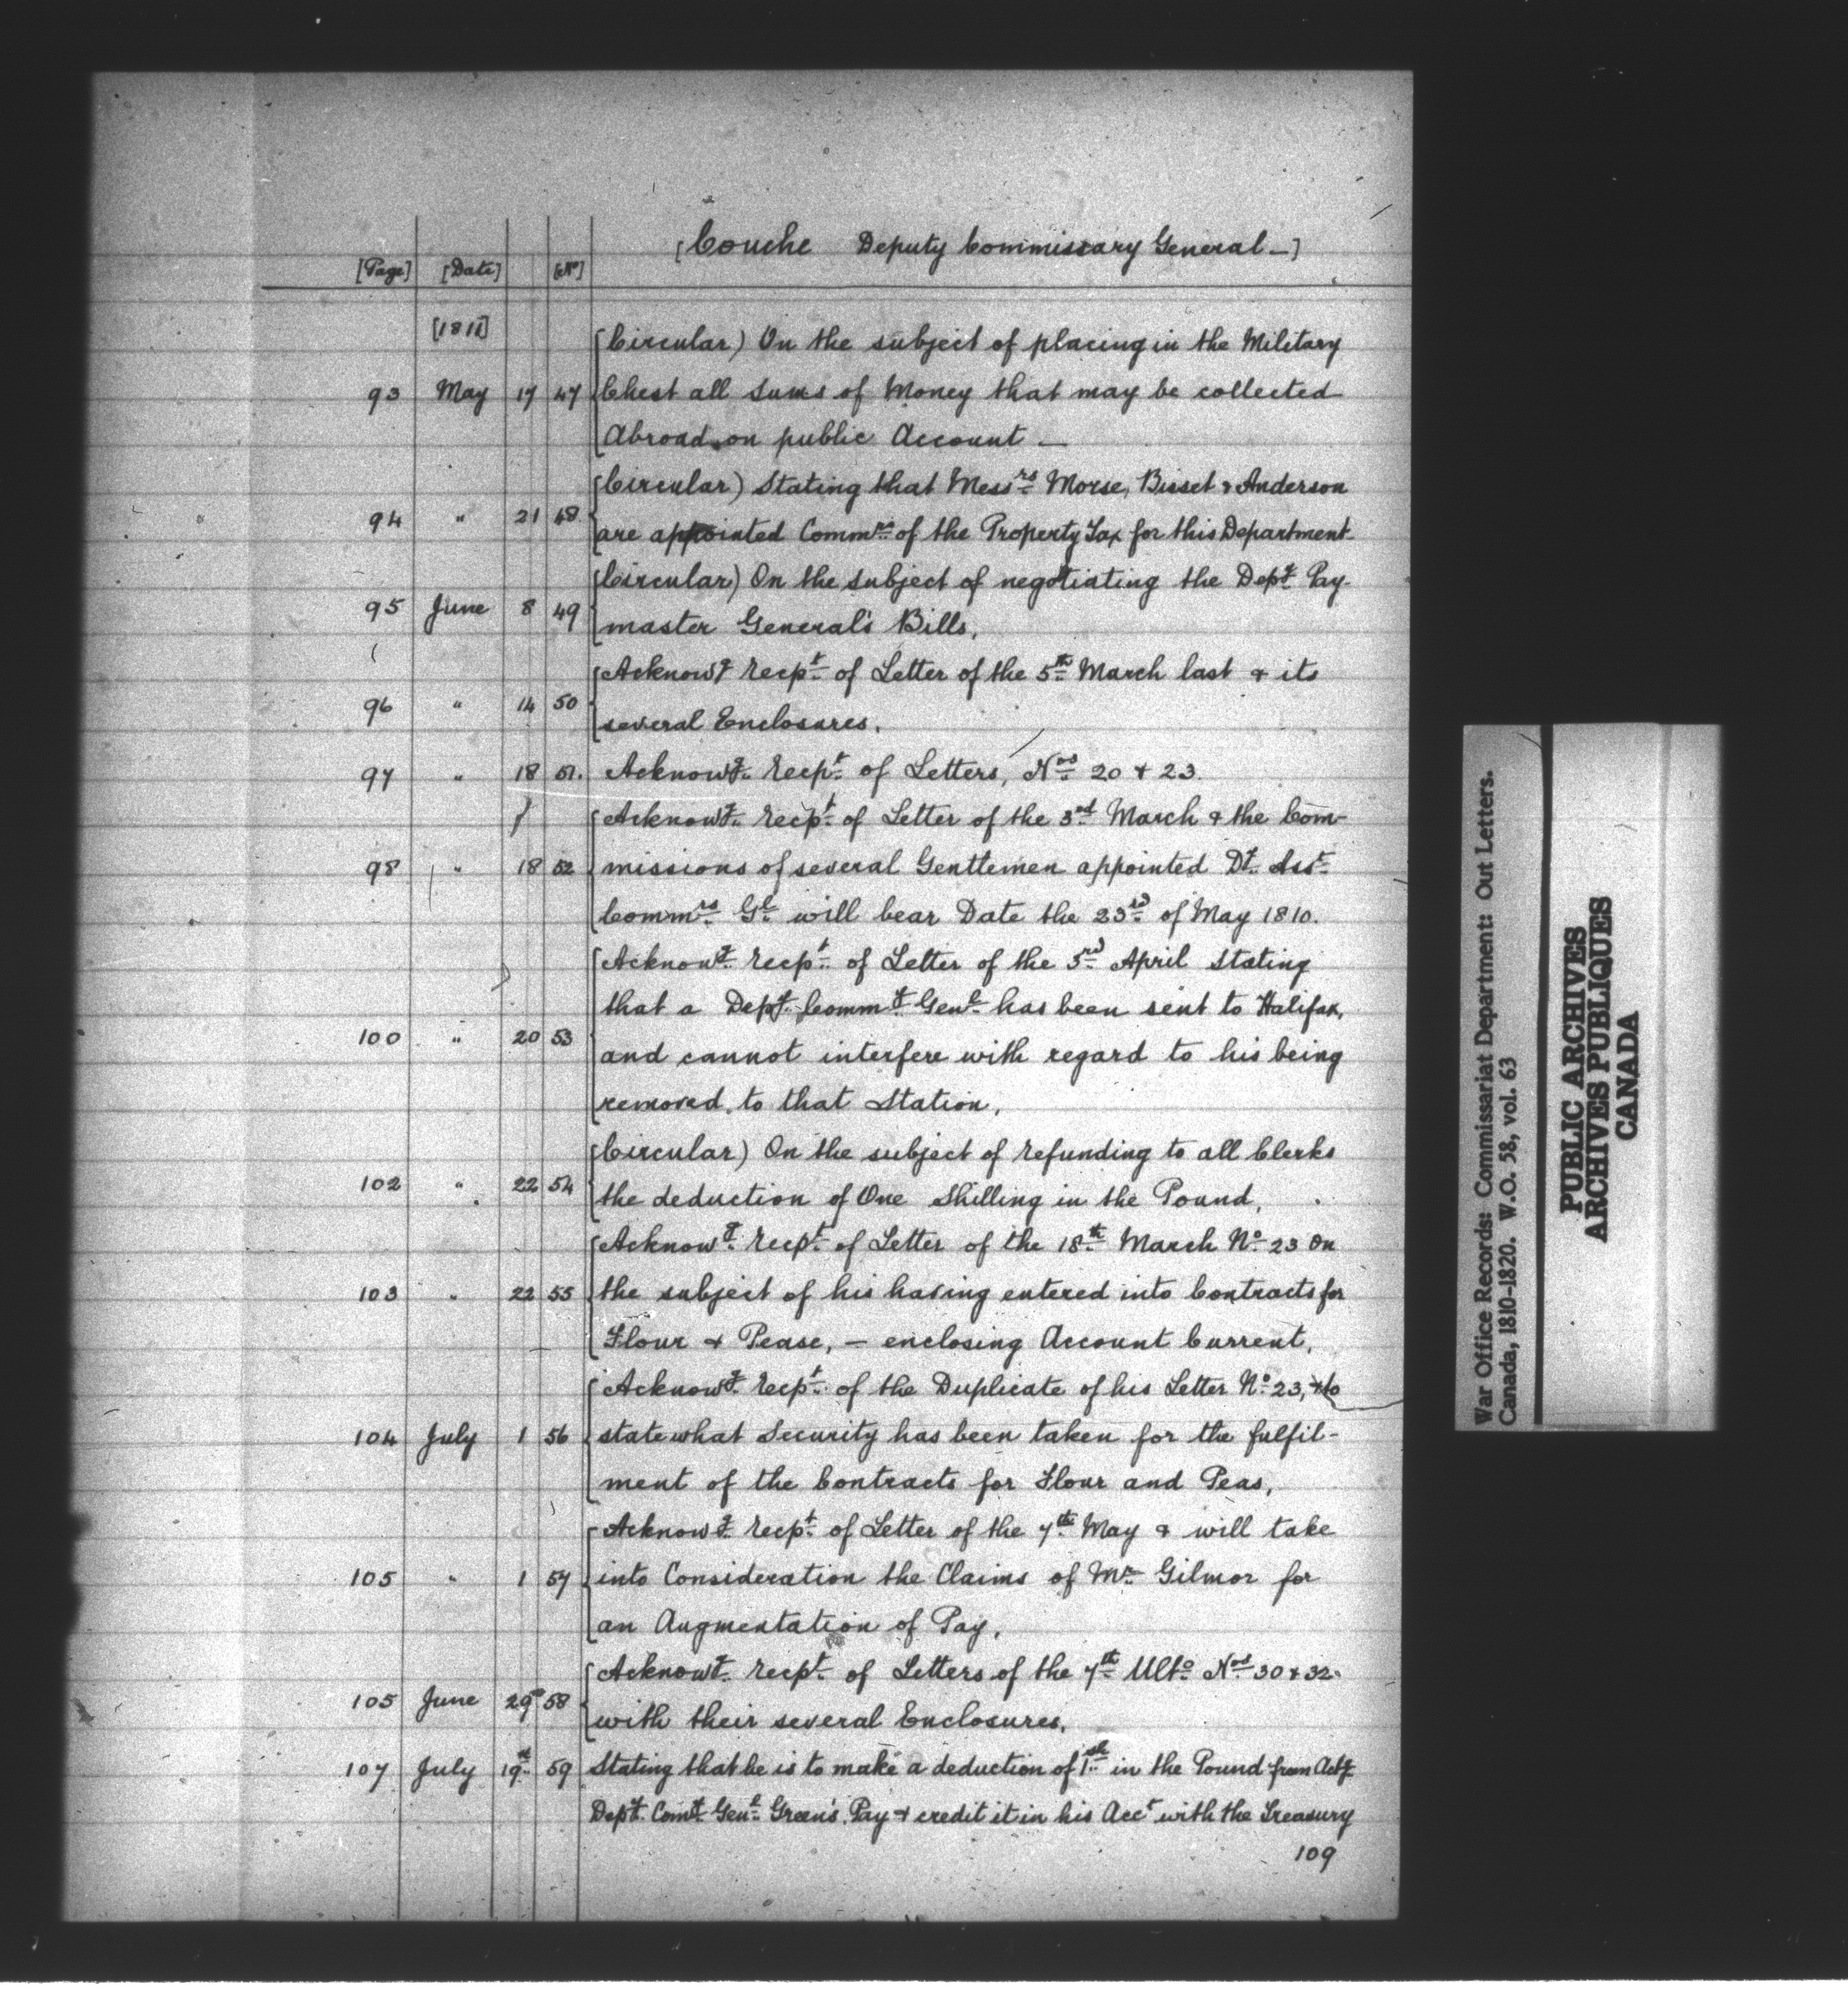 [Couche Deputy Commissary General —]
[Page] [Date] [No]
[1811]
(Circular) On the subject of placing in the Military
93 May 17 47 Chest all Sums of Money that may be collected
Abroad on public Account —
(Circular) Stating that Messrs Morse, Bisset & Anderson
94 " 21 48 are appointed Commrs of the Property Tax for this Department
(Circular) On the subject of negotiating the Depy Pay-
95 June 8 49 master General's Bills.
Acknowg recpt of Letter of the 5th March last & its
96 " 14 50 several Enclosures.
97 " 18 51. Acknowg recpt of Letters, Nos 20 & 23.
Acknowg recpt of Letter of the 3rd March & the Com-
98 " 18 52 missions of several Gentlemen appointed Dy Asst
Commrs Gl will bear Date the 23rd of May 1810.
Acknowg recpt of Letter of the 3rd April Stating
that a Depy Commy Genl has been sent to Halifax,
100 " 20 53 and cannot interfere with regard to his being
removed to that Station.
(Circular) On the subject of refunding to all Clerks
102 " 22 54 the deduction of One Shilling in the Pound.
Acknowg recpt of Letter of the 18th March No 23 On
103 " 22 55 the subject of his having entered into Contracts for
Flour & Pease, — enclosing Account Current.
Acknowg recpt of the Duplicate of his Letter No 23, & to
104 July 1 56 state what Security has been taken for the fulfil-
ment of the Contracts for Flour and Peas.
Acknowg recpt of Letter of the 7th May & will take
105 " 1 57 into Consideration the Claims of Mr Gilmor for
an Augmentation of Pay.
Acknowg recpt of Letters of the 7th Ulto Nos 30 & 32
105 June 29 58 with their several Enclosures.
107 July 19 59 Stating that he is to make a deduction of 1sh in the Pound from Actg
Depy Comy Genl Green's Pay & credit it in his Acct with the Treasury
109
War Office Records: Commissariat Department: Out Letters.
Canada, 1810-1820. W.O. 58, vol. 63
PUBLIC ARCHIVES
ARCHIVES PUBLIQUES
CANADA